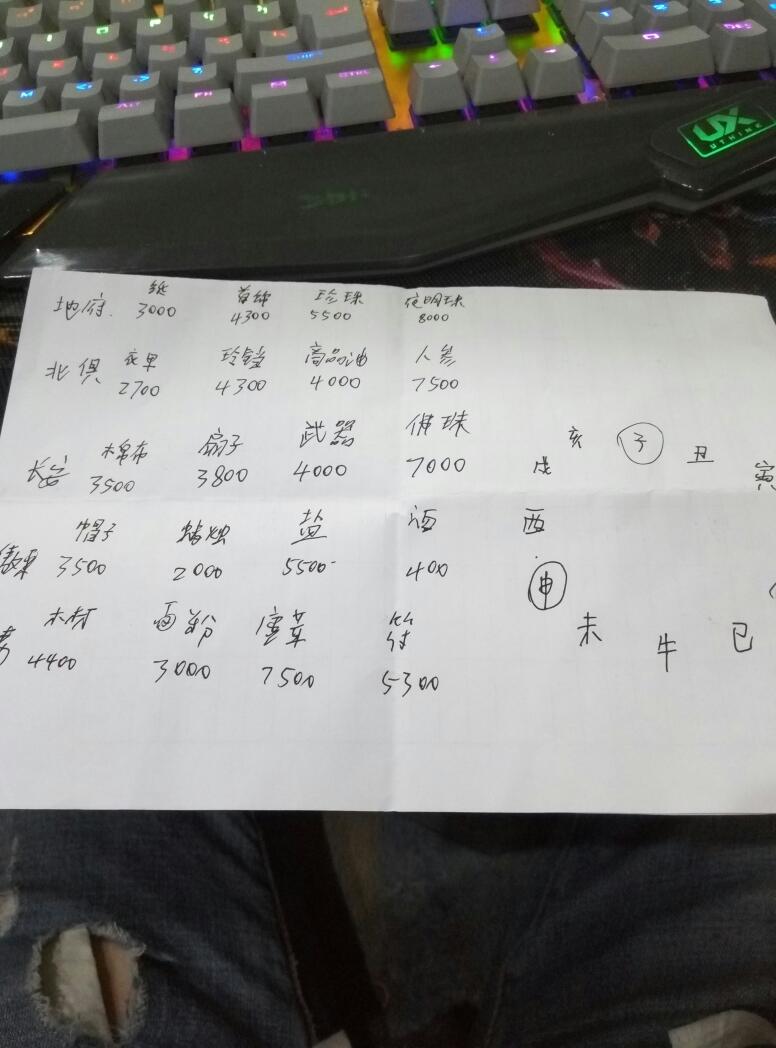 UX
UTHINK
纸 首饰 珍珠 夜明珠
地府. 3000 4300 5500 8000
衣单 玲铛 高品油 人参
北俱 2700 4300 4000 7500
棉布 扇子 武器 佛珠
长安 3500 3800 4000 7000
亥 子 丑
戌 寅
帽子 蜡烛 盐 酒 酉
傲来 3500 2000 5500 400
申
木材 面粉 符
未 牛 巳
4400 3000 7500 5300